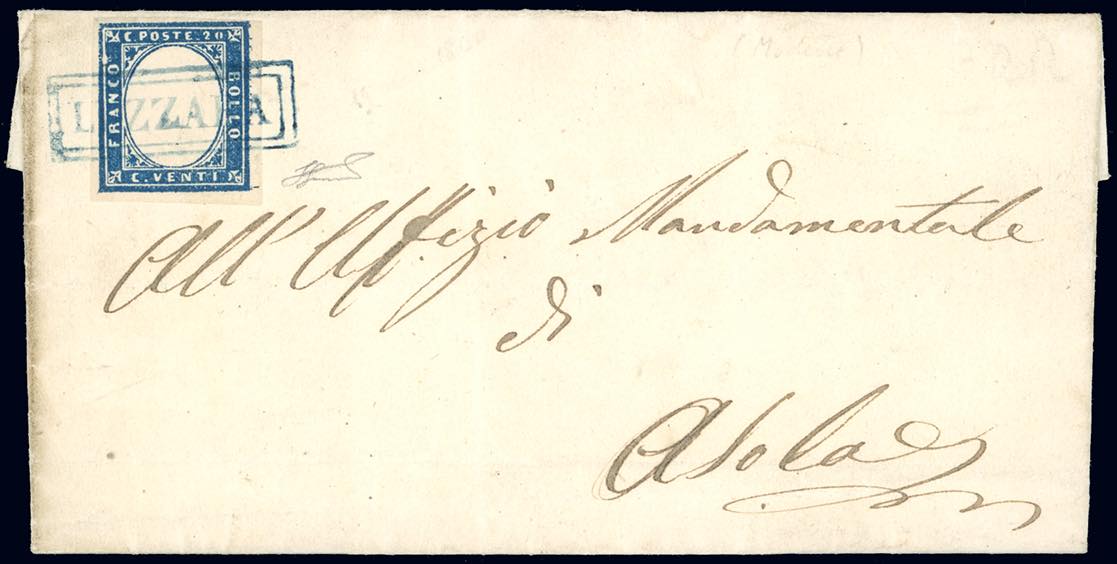 C. POSTE. 20
FRANCO
BOLLO
C. VENTI
LUZZARA
All' Uffizio Mandamentale
di
Asola